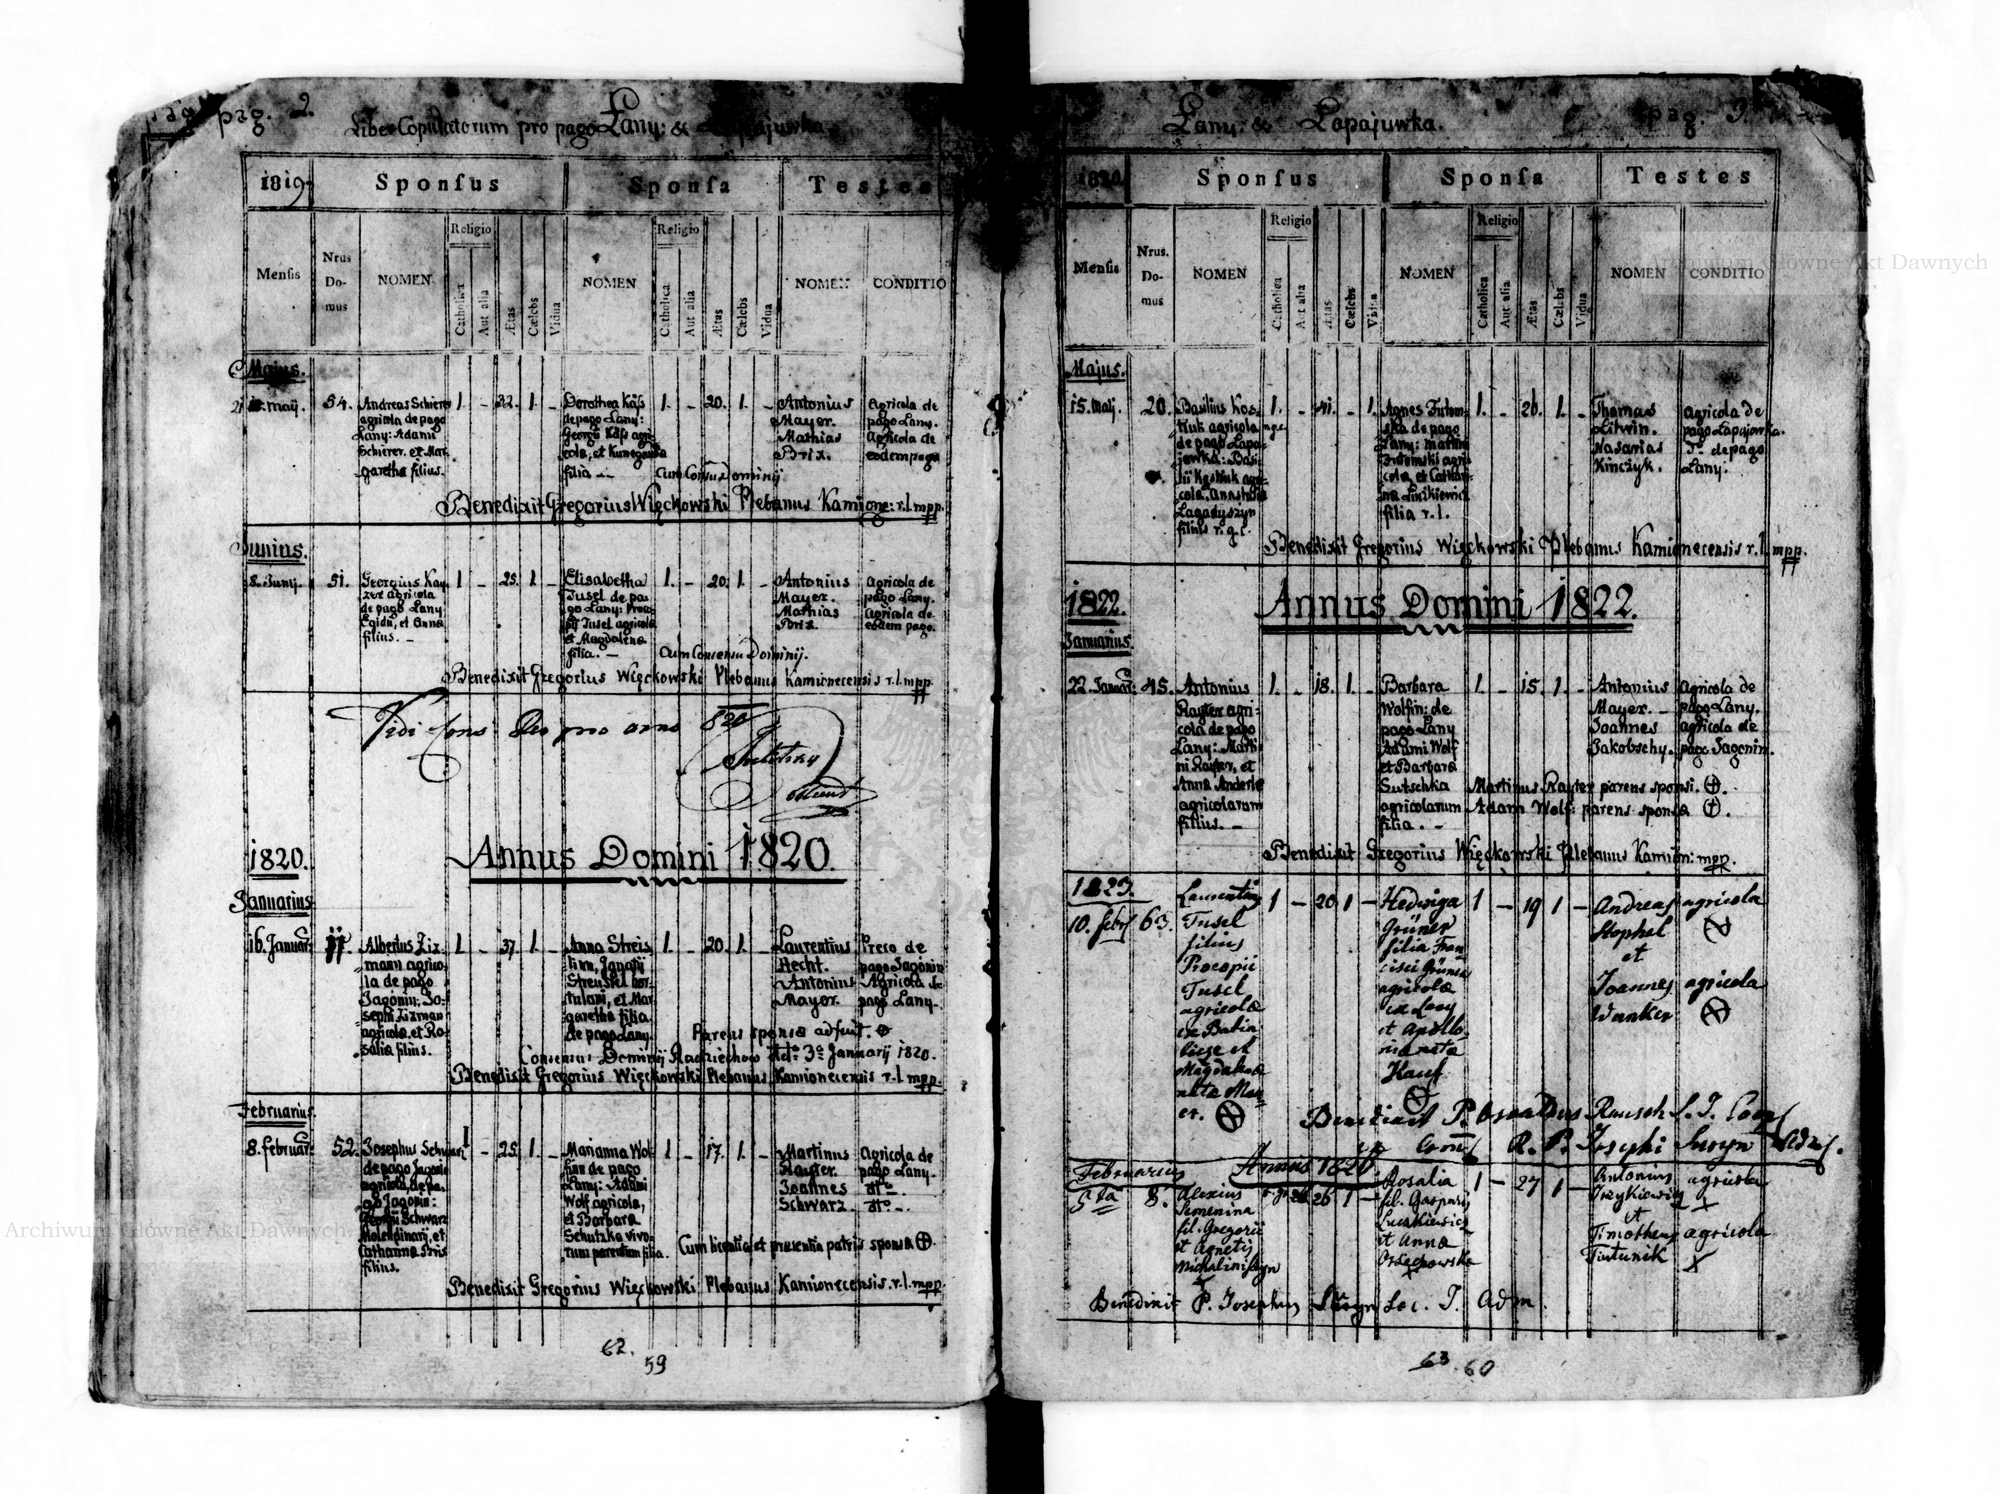 pag. 2.
Liber Copulatorum pro pago Łany: & Łapajuwka
1819
Sponſus
Sponſa
Testes
Menſis
Nrus Do-mus
NOMEN
Religio
Catholica
Aut alia
Ætas
Cælebs
Vidua
NOMEN
Religio
Catholica
Aut alia
Ætas
Cælebs
Vidua
NOMEN
CONDITIO
Majus.
maij. 54. Andreas Schierer 1. - 22. 1. - Dorothea Käſs 1. - 20. 1. - Antonius Agricola de
agricola de pago de pago Lany: Mayer. pago Lany.
Lany: Adami Georgii Käſs agri- Mathias Agricola de
Schierer. et Mar- cola, et Kunegunda Brix. eodem pago
garetha filius. filia — Cum Consensu Dominij
Benedixit Gregorius Więckowski Plebanus Kamione: r. l. mpp.
Junius.
8. Junij. 51. Georgius Kay- 1 - 25. 1. - Elisabetha 1. - 20. 1. - Antonius Agricola de
zer agricola Tusel de pa- Mayer. pago Lany.
de pago Lany go Lany: Proco- Mathias Agricola de
Egidii, et Anna pii Tusel agricola Brix. eodem pago.
filius. — et Magdalena
filia. — Cum Consensu Dominij.
Benedixit Gregorius Więckowski Plebanus Kamionecensis r. l. mpp.
Vidi pro anno 820
1820.
Annus Domini 1820.
Januarius
16. Januar: Albertus Ziz- 1. - 37. 1. - Anna Streis 1. - 20. 1. - Laurentius Preco de
mann agrico- Hecht. pago Jagonin
la de pago Antonius Agricola de
Jagonin: Jo- tulani, et Mar- Mayer. pago Lany.
seph Zizman garetha filia
agricola, et Ro- de pago Lany. Parens sponsæ adfuit. ⊕
salia filius. Consensus Dominij Radziechow 3a Januarij 1820.
Benedixit Gregorius Więckowski Plebanus Kamionecensis r. l. mpp.
Februarius.
8. februar: 52. Josephus Schwarz 1 - 25. 1. - Marianna Wol- 1 - 17. 1. - Martinus Agricola de
de pago Jagonin finn de pago Rayter. pago Lany.
agricola, de pa- Lany: Adami Joannes dto -.
go Jagonin: Wolf agricola, Schwarz. dto -.
Georgii Schwarz et Barbara
Molendinarij, et Schutzka vivo-
Catharina rum parentum filia. Cum licentia et præsentia patris sponsæ ⊕.
filius.
Benedixit Gregorius Więckowski Plebanus Kamionecensis. r. l. mpp.
62.
59
Lany: & Łopajuwka.
pag. 3.
1820
Sponſus
Sponſa
Testes
Menſis
Nrus. Do-mus
NOMEN
Religio
Catholica
Aut alia
Ætas
Cælebs
Vidua
NOMEN
Religio
Catholica
Aut alia
Ætas
Cælebs
Vidua
NOMEN
CONDITIO
Majus.
15. maij. 20. Basilius Kos- 1. - 41. - 1. Agnes 1. - 26. 1. - Thomas Agricola de
tiuk agricola r. g. c. de pago Litwin. pago Łapajowka.
de pago Łapa- Lany: Martini Nasarias do. de pago
jowka: Basi- agri- Kinczyk. Lany.
lii Kostiuk agri- cola, et Cathari-
cola, Anastasia na Luczkiewicz
Lagadyszyn filia r. l.
filius r. g. c.
Benedixit Gregorius Więckowski Plebanus Kamionecensis r. l. mpp.
1822.
Annus Domini 1822.
Januarius.
22. Januar: 45. Antonius 1. - 18. 1. - Barbara 1. - 15. 1. - Antonius Agricola de
Rayter agri- Wolfin: de Mayer. — pago Lany.
cola de pago pago Lany Joannes agricola de
Lany: Marti- Adami Wolf Jakobschy. pago Jagonin.
ni Rayter, et et Barbara
Anna Anderle Sutschka Martinus Rayter parens sponsi. ⊕.
agricolarum agricolarum Adam Wolf: parens sponsæ ⊕.
filius. — filia. —
Benedixit Gregorius Więckowski Plebanus Kamion: mpp.
1823.
10. febr 63. Laurentius 1 - 20 1 - Hedwiga 1 - 19 1 - Andreas agricola
Tusel Grüner Stophel
filius filia Fran- et
Procopii cisci Grüner
Tusel agricolæ Joannes agricola
agricolæ ex Lany Wanker
ex Babin et Apollo-
et nia nata
Magdalenæ Kauf
nata May-
er.
Benedixit P. Oswaldus Rausch
R. P. Josephi Suryn Adm.
Annus 1826
Februarius
5ta 8. Alexius 26 1 - Rosalia 1 - 27 1 - Antonius agricola
Semenina fil. Gaspari
fil. Gregorii Luczkiewicz et
et Agnetis et Anna Timotheus agricola
Orzechowska
Benedixit P. Josephus Suryn Loc. T. Adm.
63. 60
Archiwum Główne Akt Dawnych
Archiwum Główne Akt Dawnych